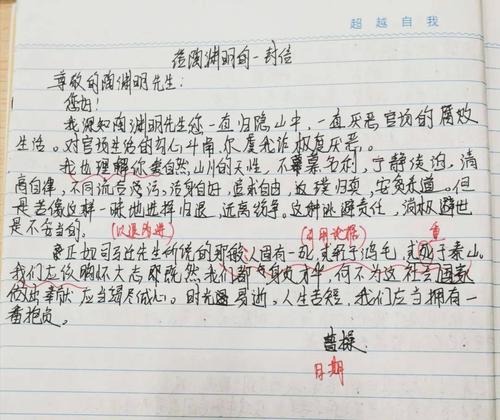 超越自我
给陶渊明的一封信
尊敬的陶渊明先生：
您好！
我深知陶渊明先生您一直归隐山中，一直厌恶官场的腐败
生活。对官场生活的勾心斗角、尔虞我诈极度厌恶。
我也理解你爱自然，山川的天性，不慕名利，宁静淡泊，清
高自律，不同流合污，洁身自好，追求自由，返璞归真，安贫乐道。但
是若像这样一味地选择归退，远离纷争。这种逃避责任，消极避世
是不妥当的。
(以退为进)
(引用论据)
重
正如司马迁先生所说的那般人固有一死，或轻于鸿毛，或于泰山。
我们应该胸怀大志，既然我们都身负才华，何不为这社会国家
做出奉献，应当竭尽诚心。时光易逝，人生苦短，我们应当拥有一
番抱负。
曹操
日期